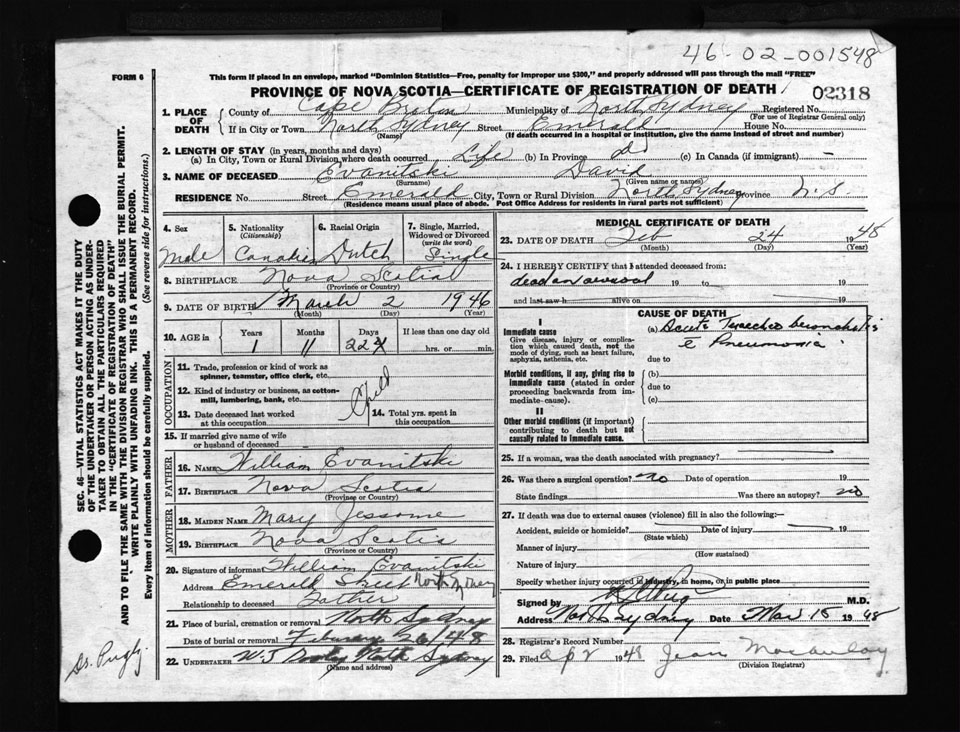 46-02-001548
FORM 6
This form if placed in an envelope, marked "Dominion Statistics—Free, penalty for improper use $300," and properly addressed will pass through the mail "FREE"
PROVINCE OF NOVA SCOTIA—CERTIFICATE OF REGISTRATION OF DEATH
02318
1. PLACE OF DEATH
County of Cape Breton Municipality of North Sydney Registered No.
(For use of Registrar General only)
If in City or Town North Sydney Street Emerald House No.
(Name) (If death occurred in a hospital or institution, give the name instead of street and number)
2. LENGTH OF STAY (in years, months and days)
(a) In City, Town or Rural Division where death occurred Life (b) In Province (c) In Canada (if immigrant) —
3. NAME OF DECEASED Evanitski David
(Surname) (Given name or names)
RESIDENCE No. Street Emerald City, Town or Rural Division North Sydney Province N.S.
(Residence means usual place of abode. Post Office Address for residents in rural parts not sufficient)
4. Sex
Male
5. Nationality
(Citizenship)
Canadian
6. Racial Origin
Dutch
7. Single, Married, Widowed or Divorced
(write the word)
Single
8. BIRTHPLACE Nova Scotia
(Province or Country)
9. DATE OF BIRTH March 2 1946
(Month) (Day) (Year)
10. AGE in Years Months Days If less than one day old
1 11 22 hrs. or min.
OCCUPATION
11. Trade, profession or kind of work as spinner, teamster, office clerk, etc.
12. Kind of industry or business, as cotton-mill, lumbering, bank, etc.
Child
13. Date deceased last worked at this occupation
14. Total yrs. spent in this occupation
15. If married give name of wife or husband of deceased
FATHER
16. NAME William Evanitski
17. BIRTHPLACE Nova Scotia
(Province or Country)
MOTHER
18. MAIDEN NAME Mary Jessome
19. BIRTHPLACE Nova Scotia
(Province or Country)
20. Signature of informant William Evanitski
Address Emerald Street North Sydney
Relationship to deceased Father
21. Place of burial, cremation or removal North Sydney
Date of burial or removal February 26/48
22. UNDERTAKER W.J. Dooley North Sydney
(Name and address)
MEDICAL CERTIFICATE OF DEATH
23. DATE OF DEATH Feb 24 1948
(Month) (Day) (Year)
24. I HEREBY CERTIFY that I attended deceased from:
dead on arrival 19 to 19
and last saw h alive on 19
CAUSE OF DEATH
I
Immediate cause
Give disease, injury or complication which caused death, not the mode of dying, such as heart failure, asphyxia, asthenia, etc.
(a) Acute Tracheo bronchitis
c Pneumonia
due to
Morbid conditions, if any, giving rise to immediate cause (stated in order proceeding backwards from immediate cause).
(b)
due to
(c)
II
Other morbid conditions (if important) contributing to death but not causally related to immediate cause.
25. If a woman, was the death associated with pregnancy?
26. Was there a surgical operation? no Date of operation 19
State findings Was there an autopsy? no
27. If death was due to external causes (violence) fill in also the following:—
Accident, suicide or homicide? Date of injury 19
(State which)
Manner of injury
(How sustained)
Nature of injury
Specify whether injury occurred in industry, in home, or in public place
Signed by M.D.
Address North Sydney Date Mar 15 1948
28. Registrar's Record Number
29. Filed Apr 1948 Jean Macaulay
(Division Registrar)
SEC. 46—VITAL STATISTICS ACT MAKES IT THE DUTY
OF THE UNDERTAKER OR PERSON ACTING AS UNDER-
TAKER TO OBTAIN ALL THE PARTICULARS REQUIRED
IN THE "CERTIFICATE OF REGISTRATION OF DEATH"
AND TO FILE THE SAME WITH THE DIVISION REGISTRAR WHO SHALL ISSUE THE BURIAL PERMIT.
WRITE PLAINLY WITH UNFADING INK. THIS IS A PERMANENT RECORD.
Every item of information should be carefully supplied. (See reverse side for instructions.)
Dr. Pugly.